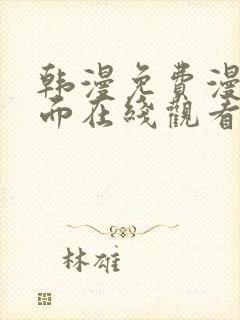 韩漫免费漫
而在线觀看
林雄